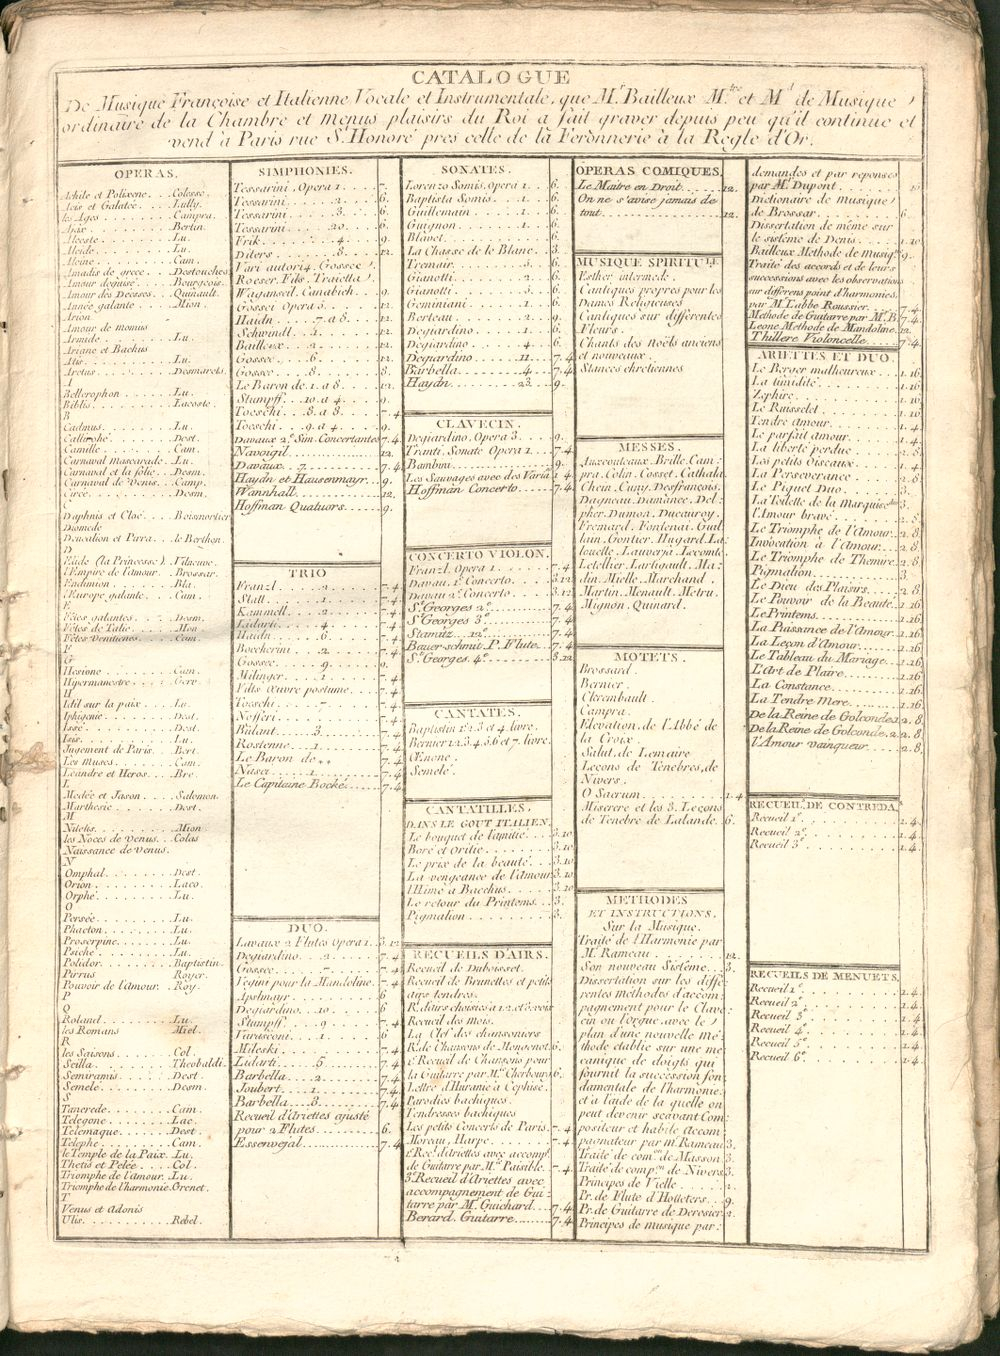 CATALOGUE
De Musique Françoise et Italienne, Vocale et Instrumentale, que Mr. Bailleux Mtre et Md de Musique
ordinaire de la Chambre et menus plaisirs du Roi a fait graver depuis peu qu'il continue et
vend à Paris rue St. Honoré près celle de la Feronnerie à la Règle d'Or.
OPERAS.
Achile et Polixene . . . Colosse.
Acis et Galatée . . Lully.
les Ages . . . . . Campra.
Ajax . . . . . Bertin.
Alceste . . . . . Lu.
Alcide . . . . . Lu.
Alcine . . . . . Cam.
Amadis de grece . . . Destouches
Amour déguisé . . . Bourgeois.
Amour des Déesses . . Quinault.
Année galante . . . Mion.
Arion
Amour de momus
Armide . . . . . Lu.
Ariane et Bachus
Atis . . . . . Lu.
Aretus . . . . . Desmarets.
A
Bellerophon . . . . . Lu.
Biblis . . . . . Lacoste.
B
Cadmus . . . . . Lu.
Callirohé . . . . . Dest.
Camille . . . . . Cam.
Carnaval mascarade . Lu.
Carnaval et la folie . . Desm.
Carnaval de Venis . . Camp.
Circé . . . . . Desm.
C
Daphnis et Cloé . . . Boismortier
Diomede
Deucalion et Parra . . le Berthon.
D
l'Empire de l'amour . Brossar.
Endimion . . . . Bla.
l'Europe galante . . Cam.
E
Fêtes galantes . . . . Desm.
Fêtes de Talie . . . Mou
Fêtes venitienes . . Cam.
F
G
Hesione . . . . . Cam.
Hypermanestre . . . Gerv.
H
Idil sur la paix . . Lu.
Iphigenie . . . . Dest.
Issé . . . . . Dest.
Isis . . . . . Lu.
Jugement de Paris . Bert.
Les Muses . . . . Cam.
Leandre et Heros . . . Bre.
L
Medée et Jason . . . Salomon.
Marthesie . . . . Dest.
M
Nitetis . . . . . Mion
les Noces de Venus . . Colas
Naissance de Venus.
N
Omphal . . . . . Dest.
Orion . . . . . Laco.
Orphé . . . . . Lu.
O
Persée . . . . . Lu.
Phaeton . . . . . Lu.
Proserpine . . . . Lu.
Psiché . . . . . Lu.
Polidor . . . . . Baptistin.
Pirrus . . . . . Royer.
Pouvoir de l'Amour . Roy.
P
Q
Roland . . . . . Lu.
les Romans . . . Niel.
R
les Saisons . . . . Col.
Scilla . . . . . Theobaldi.
Semiramis . . . . Dest.
Semele . . . . . Desm.
S
Tancrede . . . . Cam.
Telegone . . . . Lac.
Telemaque . . . . Dest.
Telephe . . . . Cam.
le Temple de la Paix . Lu.
Thetis et Pelée . . . Col.
Triomphe de l'amour . Lu.
Triomphe de l'harmonie . Grenet.
T
Venus et Adonis
Ulis . . . . . Rebel.
SIMPHONIES.
Tessarini . Opera 1 . . . . 7.
Tessarini . . . . . 2 . . . . 6.
Tessarini . . . . . 3 . . . . 6.
Tessarini . . . . . 20 . . . . 6.
Frik . . . . . 4 . . . . 9.
Diters . . . . . 8 . . . . 12.
Vari autori 4. Gossec,
Roeser. Fils. Traietta,
Wagenseil. Canabich . . . 9.
Gossei Opera 5 . . . . 12.
Haidn . . . . 7. a 8 . . . 12.
Schwindl . . . 1 . . . . 12.
Bailleux . . . . 2 . . . . 12.
Gossec . . . . . 6 . . . . 12.
Gossec . . . . . 8 . . . . 8.
Le Baron de . 1 a 8 . . . 12.
Stumpff . . . 10. a 4 . . . 9.
Toeschi . . . 8. a 8 . . . 7. 4
Toeschi . . . 9. a 4 . . . 9.
Davaux 2e. Sim. Concertantes 7. 4
Navoigil . . . . . 12.
Davaux . . . 7 . . . . 7. 4
Haydn et Hausenmayr . . . 9.
Wannhall . . . . . 12.
Hoffman Quatuors . . . 9.
TRIO
Franzl . . . . 2 . . . . 7. 4
Statt . . . . . 1 . . . . 7. 4
Kammell . . . . 2 . . . . 7. 4
Lidarti . . . . 4 . . . . 7. 4
Haidn . . . . . 6 . . . . 7. 4
Boccherini . . . 2 . . . . 7. 4
Gossec . . . . . 9 . . . . 9.
Milinger . . . . 1 . . . . 7. 4
Filts Œuvre postume . . . 7. 4
Toeschi . . . . 7 . . . . 7. 4
Nofferi . . . . . 7. 4
Bulant . . . . . 3 . . . . 7. 4
Rostenne . . . 1 . . . . 7. 4
Le Baron de . . . . . 7. 4
Nasci . . . . . 1 . . . . 7. 4
Le Capitaine Bocké . . . 7. 4
DUO.
Lavaux 2 Flutes Opera 1 . 3. 12
Degiardino . . . 2 . . . . 7. 4
Gossec . . . . . 7 . . . . 7. 4
Vegini pour la Mandoline . 7. 4
Apslmayr . . . . . 6
Degiardino . . . 10 . . . . 6
Stumpff . . . . 9 . . . . 7. 4
Varasconi . . . 1 . . . . 6
Mileski . . . . . 7. 4
Lidarti . . . . 5 . . . . 7. 4
Barbella . . . . 2 . . . . 7. 4
Joubert . . . . 1 . . . . 7. 4
Barbella . . . . 3 . . . . 7. 4
Recueil d'Ariettes ajusté
pour 2 Flutes . . . . . 6.
Essenvejal . . . . . 7. 4
SONATES.
Lorenzo Somis . Opera 1 . . . 6.
Baptista Somis . . 1 . . . . 6.
Guillemain . . . . 1 . . . . 6.
Guignon . . . . . 1 . . . . 6.
Blavet . . . . . 6.
La Chasse de le Blanc . . . 3.
Tremair . . . . . 6.
Gianotti . . . . . 2 . . . . 6.
Gianotti . . . . . 5 . . . . 6.
Geminiani . . . . 1 . . . . 6.
Berteau . . . . . 2 . . . . 9.
Degiardino . . . . 1 . . . . 6.
Degiardino . . . . 4 . . . . 6.
Degiardino . . . . 11 . . . 7. 4
Barbella . . . . . 4 . . . . 7. 4
Haydn . . . . . 23 . . . . 9.
CLAVECIN.
Degiardino. Opera 3 . . . 9.
Tranti. Sonate Opera 1 . . . 7. 4
Bambini . . . . . 9.
Les Sauvages avec des Varia. 1. 4
Hoffman Concerto . . . . 7. 4
CONCERTO VIOLON.
Franzl. Opera 1 . . . . 7. 4
Davau. 1er. Concerto . . . 3. 12
Davau 2e. Concerto . . . 3. 12
St. Georges 2e . . . . 7. 4
St. Georges 3e . . . . 7. 4
Stamitz . . . 12e . . . . 7. 4
Bauer-schmit. P. Flute . . 7. 4
St. Georges. 4e . . . . 3. 12
CANTATES.
Baptistin 1. 2. 3 et 4. livre.
Bernier 1. 2. 3. 4. 5. 6 et 7. livre.
Œnone.
Semelé.
CANTATILLES.
DANS LE GOUT ITALIEN.
Le bouquet de l'amitie . . . 3. 10
Boré et Oritie . . . . . 3. 10
Le prix de la beauté . . . 3. 10
La vengeance de l'amour 3. 10
l'Himē à Bacchus . . . . 3. 10
Le retour du Printems . . . 3.
Pigmalion . . . . . 3.
RECUEILS D'AIRS.
Recueil de Duboisset.
Recueil de Brunettes et petits
airs tendres.
Rl. d'airs choisies à 1. 2. et 3. voix
Recueil des mois.
La Clef des chansoniers
Rl. de Chansons de Mongenot 6.
1er Recueil de Chansons pour
la Guitarre par Me. Cherbourg 6.
Lettre d'Huranie à Cephise.
Parodies bachiques.
Tendresses bachiques
Les petits Concerts de Paris . 7. 4
Moreau, Harpe . . . . 7. 4
2e Recl. d'Ariettes avec accomp.
de Guitare par Me. Paisible . . 7. 4
3e. Recueil d'Ariettes avec
accompagnement de Gui=
tarre par M. Guichard . . . 7. 4
Berard. Guitarre . . . . 7. 4
OPERAS COMIQUES.
Le Maitre en Droit . . . . 12.
On ne s'avise jamais de
tout . . . . . 12.
MUSIQUE SPIRITULE
Esther intermede.
Cantiques propres pour les
Dames Religieuses
Cantiques sur différentes
Fleurs.
Chants des Noëls anciens
et nouveaux.
Stances chretiennes
MESSES.
Auxcouteaux. Brille. Cam=
pra. Colin. Cosset. Cathala.
Chein. Cuny. Desfrançois.
Dagneau. Damance. Del=
pher. Dumon. Ducauroy.
Fremard. Fontenai. Guil=
lain. Gontier. Hugard. La=
louelle. Lauverja. Lecomte.
Letellier. Lartigault. Ma=
din. Mielle. Marchand.
Martin. Menault. Metru.
Mignon. Quinard.
MOTETS.
Brossard.
Bernier.
Clerembault.
Campra.
Elevation de l'Abbé de
la Croix.
Salut de Lemaire
Leçons de Ténebres, de
Nivers.
O Sacrum . . . . . 1. 4
Miserere et les 3. Leçons
de Ténebre de Lalande . 6.
METHODES
ET INSTRUCTIONS.
Sur la Musique.
Traité de l'Harmonie par
Mr. Rameau . . . . . 12.
Son nouveau Sistême . . . 3.
Dissertation sur les diffe=
rentes méthodes d'accom=
pagnement pour le Clave=
cin ou l'orgue, avec le
plan d'une nouvelle mé=
thode établie sur une mé=
canique de doigts qui
fournit la succession fon=
damentale de l'harmonie,
et à l'aide de la quelle on
peut devenir sçavant Com=
positeur et habile accom=
pagnateur par mr. Rameau 3.
Traité de comon. de Masson 3.
Traité de compon. de Nivers 3.
Principes de Vielle . . . . 2.
Pr. de Flute d'Hotteters . . 9.
Pr. de Guitarre de Derosier 2.
Principes de musique par:
demandes et par reponses
par Mr. Dupont . . . . 10
Dictionaire de musique
de Brossar . . . . . 6.
Dissertation de même sur
le sistême de Denis . . . . 1. 10
Bailleux Methode de musiqe. 9.
Traité des accords et de leurs
successions avec les observations
sur differens point d'harmonies,
par Mr. L'abbé Roussier . . . 7. 4
Methode de Guitarre par Mr. B. 7. 4
Leone Methode de Mandoline . 12.
Thillere Violoncelle . . . . 7. 4
ARIETTES ET DUO.
Le Berger malheureux . . . 1. 16.
La timidité . . . . . 1. 16.
Zephire . . . . . 1. 16
Le Ruisselet . . . . . 1. 16
Tendre Amour . . . . . 1. 4.
Le parfait amour . . . . 1. 4.
La liberté perdue . . . . 2. 8.
Les petits Oiseaux . . . . 1. 4.
La Perseverance . . . . 2. 8
Le Piquet Duo . . . . . 3.
La Toilette de la Marquise duo 3.
l'Amour bravé . . . . . 2. 8.
Le Triomphe de l'Amour . . 2. 8.
Invocation à l'Amour . . . 2. 8.
Le Triomphe de Themire . . 2. 8.
Pigmalion . . . . . 3.
Le Dieu des Plaisirs . . . . 2. 8
Le Pouvoir de la Beauté . . 1. 16
Le Printems . . . . . 1. 16.
La Puissance de l'Amour . 1. 16.
La Leçon d'Amour . . . . 1. 16
Le Tableau du Mariage . . 1. 16.
L'Art de Plaire . . . . 1. 16.
La Constance . . . . . 1. 16.
La Tendre Mere . . . . 1. 16.
De la Reine de Golconde . 1. 2. 8.
De la Reine de Golconde . 2. 2. 8.
l'Amour vainqueur . . . . 2. 8.
RECUEIL DE CONTREDA.s
Recueil 1e. . . . . . 1. 4.
Recueil 2e. . . . . . 1. 4.
Recueil 3e. . . . . . 1. 4.
RECUEILS DE MENUETS.
Recueil 1e . . . . . 1. 4.
Recueil 2e . . . . . 1. 4.
Recueil 3e . . . . . 1. 4.
Recueil 4e . . . . . 1. 4.
Recueil 5e . . . . . 1. 4.
Recueil 6e . . . . . 1. 4.